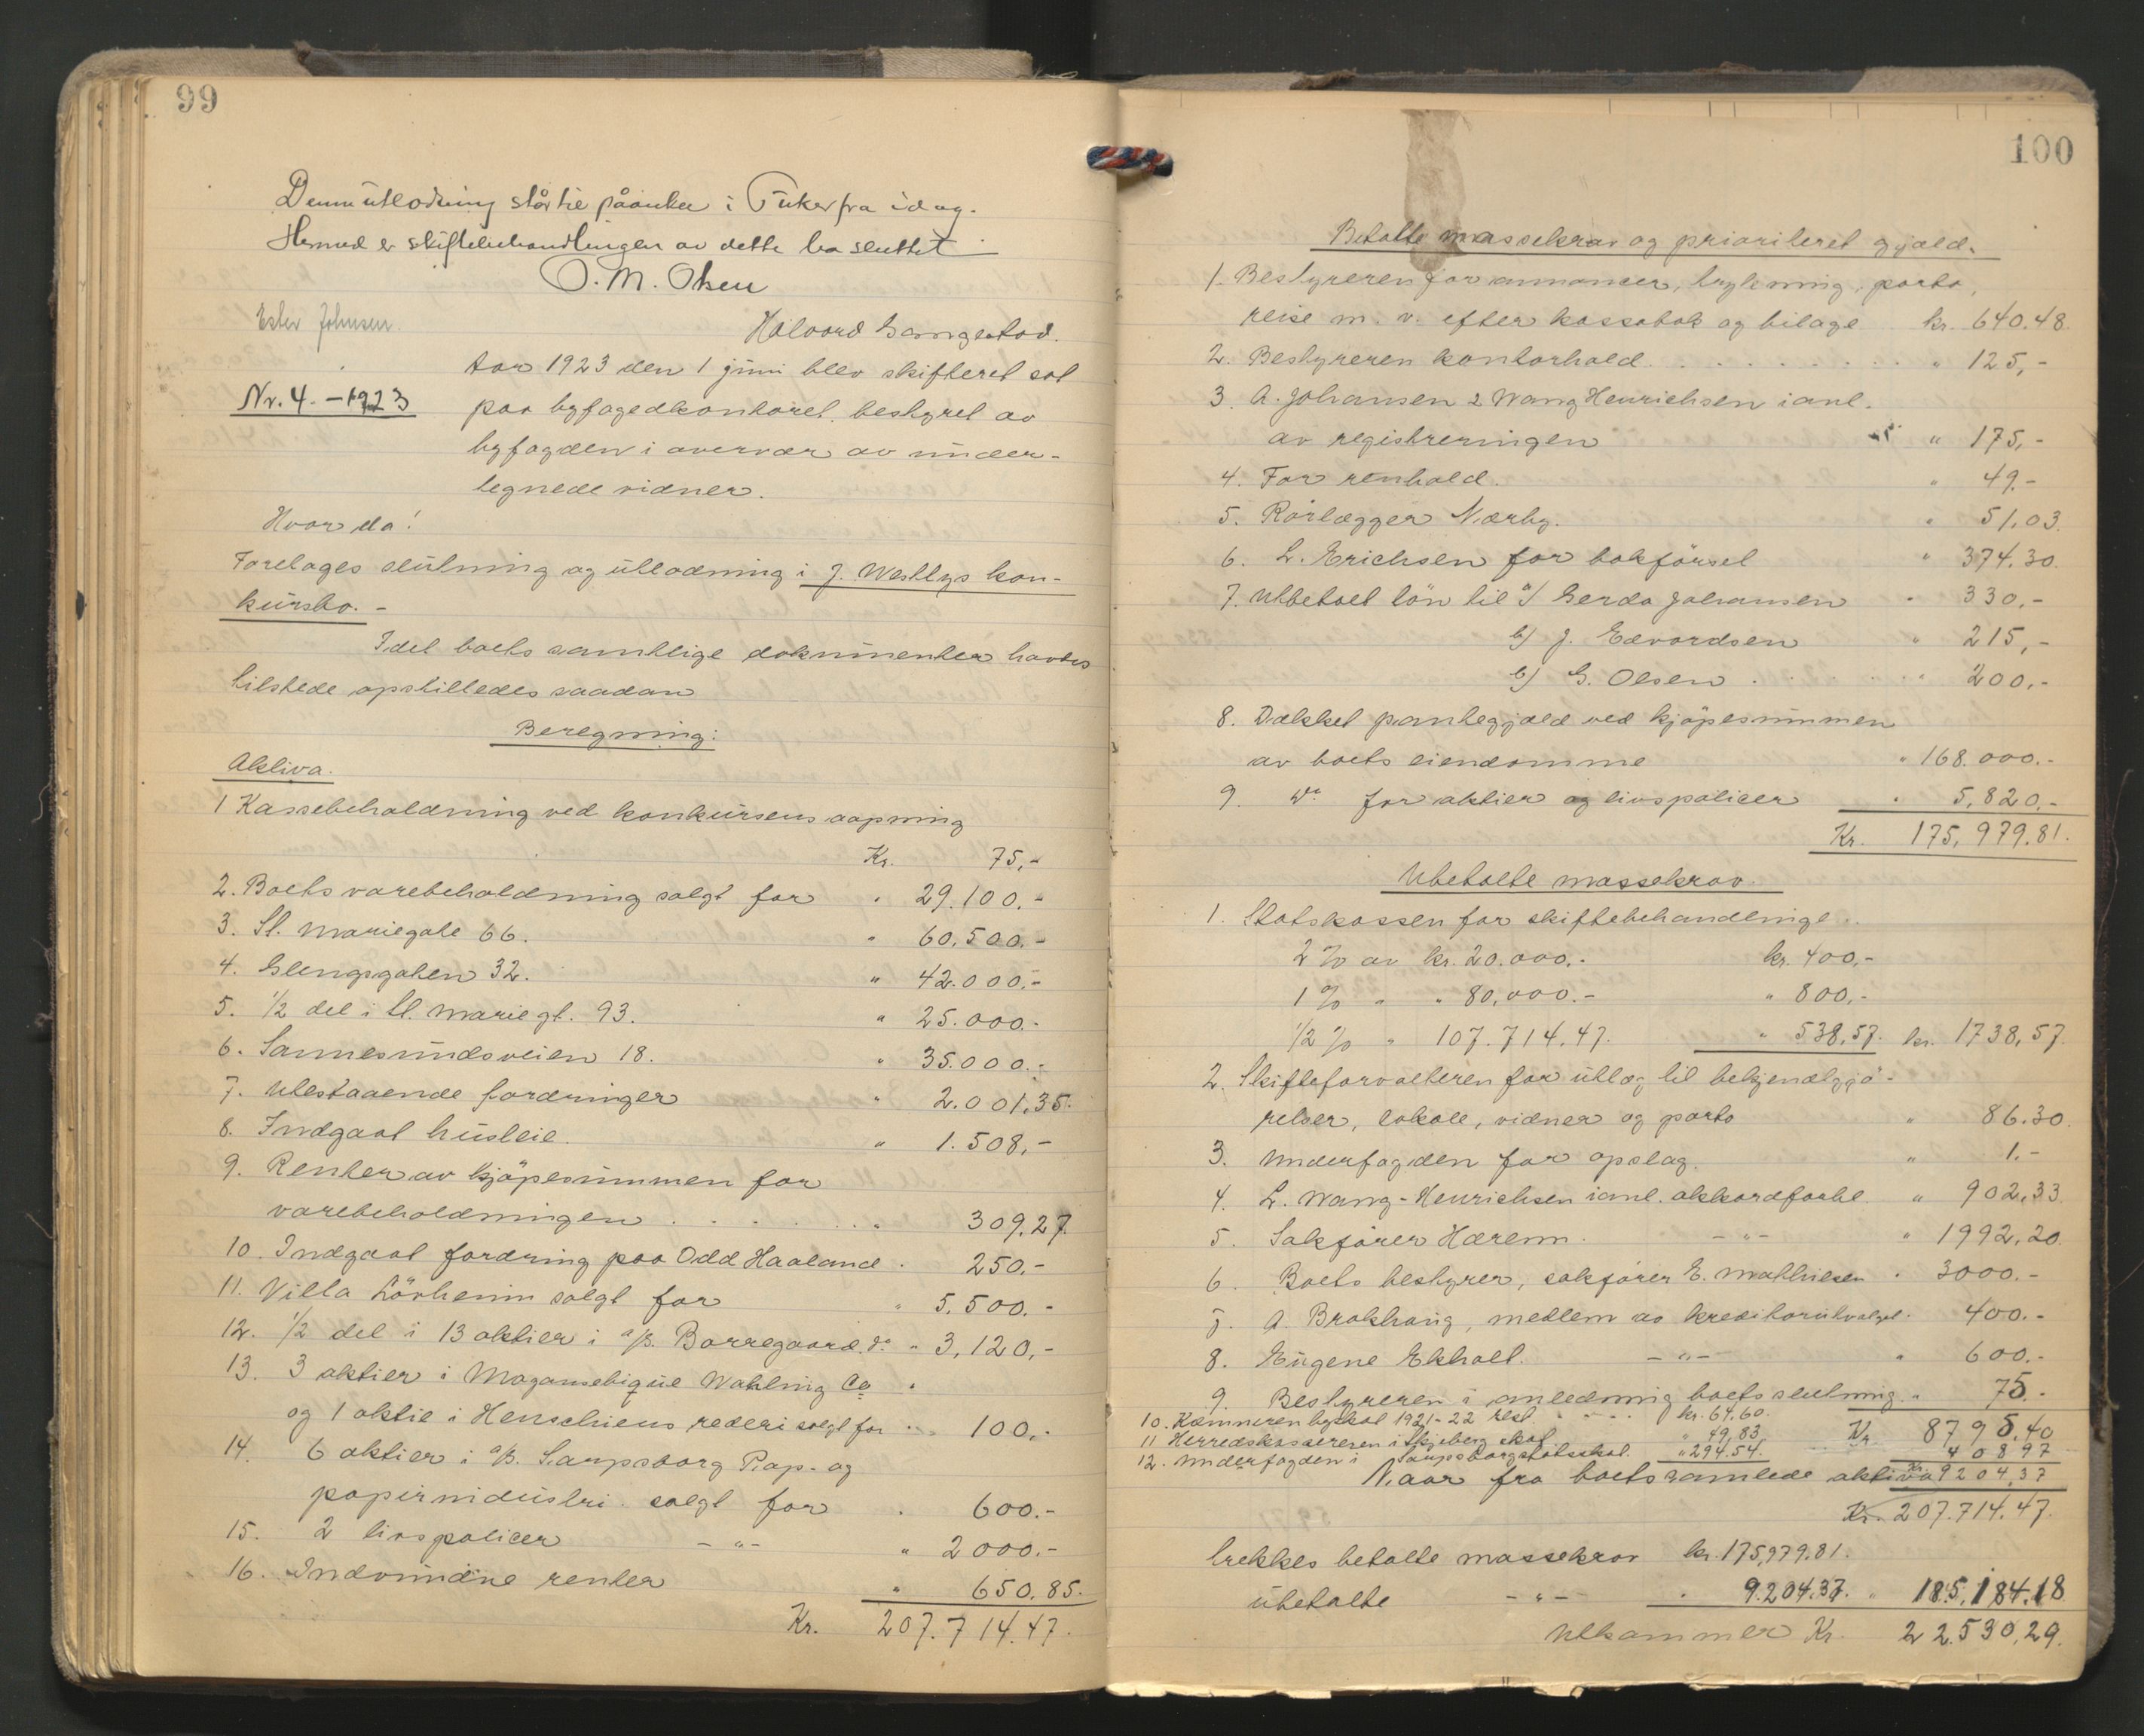 99
Denne utlodning står til påanke i 6 uker fra idag.
Hermed er skiftebehandlingen av dette bo sluttet
O. M. Olsen
Ester Johnsen.
Halvard Gangestad.
Nr. 4. – 1923
Aar 1923 den 1 juni blev skifteret sat
paa byfogedkontoret, bestyret av
byfogden i overvær av under-
tegnede vidner.
Hvorda!
Foretages slutning og utlodning i J. Westlys kon-
kursbo. -
Idet boets samtlige dokumenter havdes
tilstede opstilledes saadan
Beregning:
Aktiva.
1 Kassebeholdning ved konkursens aapning
Kr. 75,-
2. Boets varebeholdning solgt for " 29.100.-
3. St. Mariegate 66. " 60.500.-
4. Glengsgaten 32. " 42.000.-
5. 1/2 del i St. Mariegt. 93. " 25.000.-
6. Sannesundsveien 18. " 35.000.-
7. Utestaaende fordringer " 2.001,35.
8. Indgaat husleie. " 1.508,-
9. Renter av kjøpesummen for
varebeholdningen . . . . . . " 309,27.
10. Indgaat fordring paa Odd Haaland " 250.-
11. Villa Lövheim solgt for " 5.500.-
12. 1/2 del i 13 aktier i a/s. Borregaard. do " 3,120,-
13. 3 aktier i Mozambique Whaling Co "
og 1 aktie i Henschiens rederi solgt for . " 100,-
14. 6 aktier i a/s. Sarpsborg Pap- og
papirindustri solgt for " 600.-
15. 2 livspolicer - " - " 2000.-
16. Indvundne renter " 650,85.
Kr. 207.714.47.
100
Betalte massekrav og prioritert gjæld.
1. Bestyreren for annoncer, brylening, porto,
reise m. v. efter kassabok og bilage kr. 640.48.
2. Bestyreren kontorhold . . . . . . . " 125,-
3. A. Johansen & Wang Henrichsen i anl.
av registreringen " 175,-
4. For renhold. " 49.-
5. Rörlægger Nærby. " 51,03.
6. L. Erichsen for bokförsel " 374.30.
7. Utbetalt lön til a/ Gerda Johansen " 330,-
b) J. Edvardsen " 215,-
c) G. Olsen . . . . . " 200,-
8. Dækket pantegjæld ved kjöpesummen
av boets eiendomme " 168.000.-
9. do for aktier og livspolicer " 5,820,-
Kr. 175,979.81.
Ubetalte massekrav.
1. Statskassen for skiftebehandlinge..
2 % av kr. 20.000.- kr. 400,-
1 % " " 80,000.- " 800,-
1/2 % " 107.714.47. " 538,57. kr. 1738,57.
2. Skifteforvalteren for utlæg til bekjendtgjö-
relser, lokale, vidner og porto " 86.30.
3. Underfogden for opslag. " 1.-
4. L. Wang-Henrichsen i anl. akkordforhl. " 902,33
5. Sakförer Harem. - " - " 1992,20.
6. Boets bestyrer, sakförer E. Mathiesen " 3000.-
7. A. Brokhaug, medlem av kreditorutvalget. 400.-
8. Eugene Ekholt. - " - " 600.-
9. Bestyreren i anledning boets slutning. " 75.-
10. Kæmneren byskat 1921-22 rest. . . . . kr. 64,60. Kr. 8795,40
11 Herredskassereren i Skjeberg skat " 49,83
12. Underfogden i Sarpsborg statsskat. " 294.54. 408 97
Naar fra boets samlede aktiva Kr. 9204,37
Kr. 207.714.47.
trekkes betalte massekrav kr. 175,979.81.
ubetalte - " - " 9.204.37. " 185.184.18
Utkommer Kr. 22.530,29.